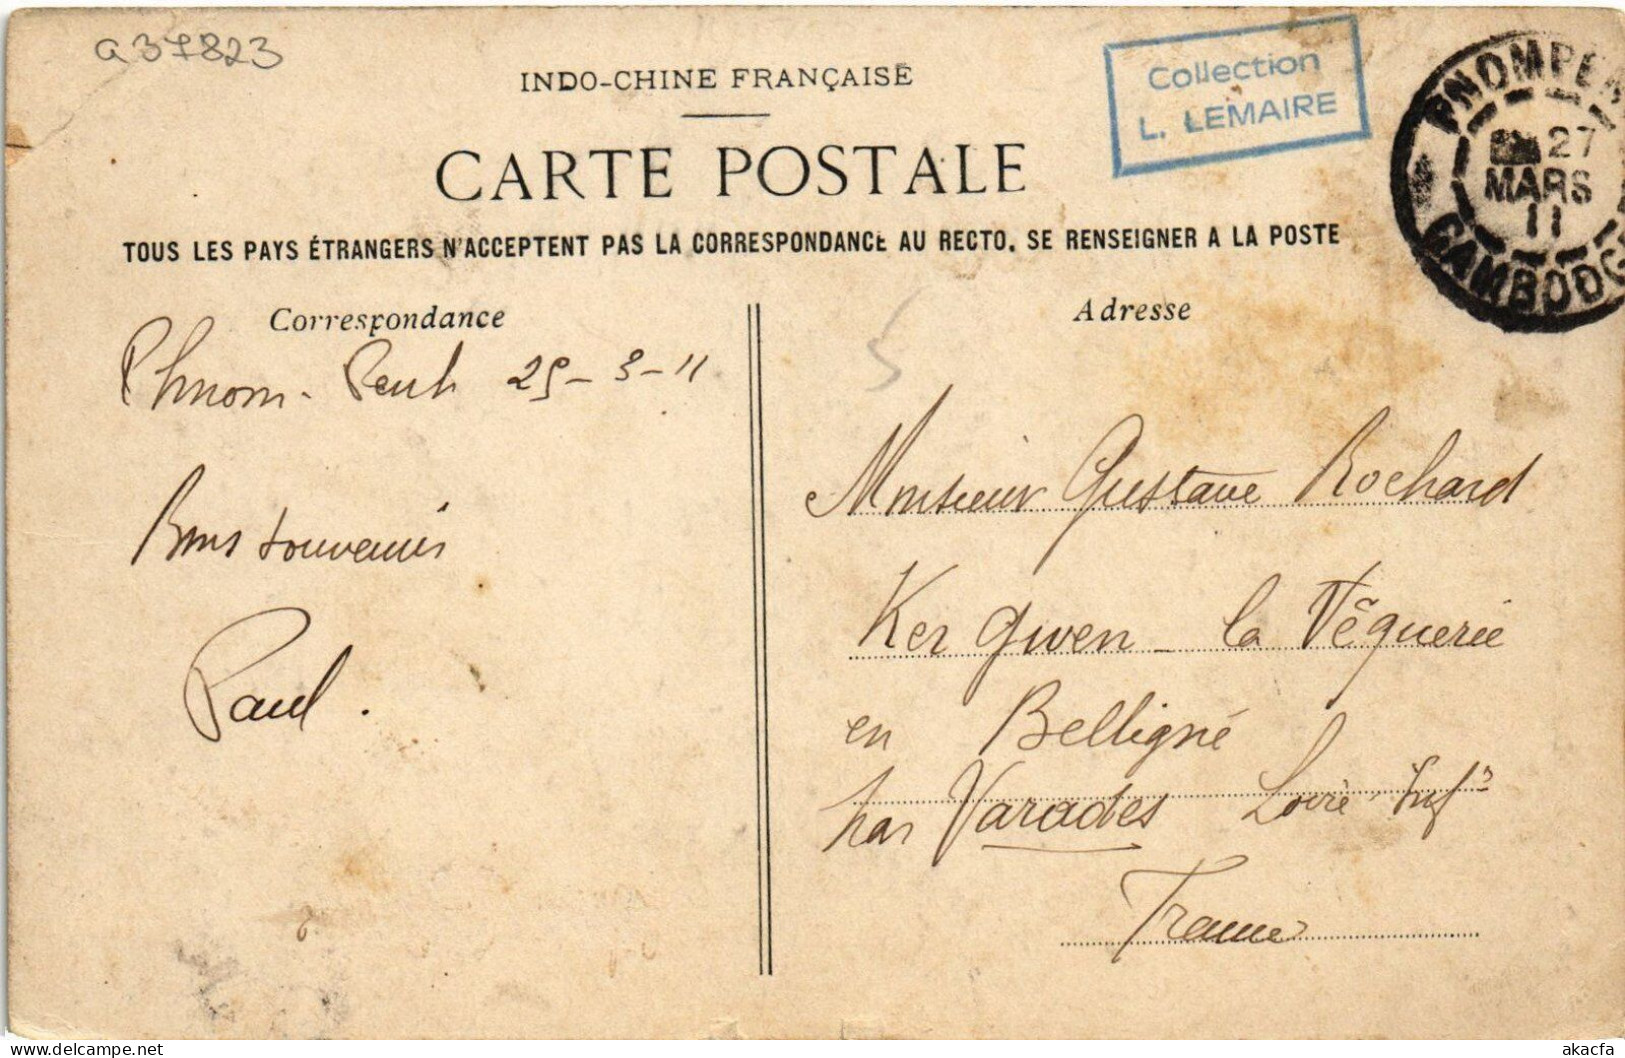 a 37823
INDO-CHINE FRANÇAISE
CARTE POSTALE
Collection
L. LEMAIRE
PNOMPEN
27
MARS
11
CAMBODGE
TOUS LES PAYS ÉTRANGERS N'ACCEPTENT PAS LA CORRESPONDANCE AU RECTO. SE RENSEIGNER A LA POSTE
Correspondance
Phnom-Penh 25-3-11
Bons souvenirs
Paul.
Adresse
Monsieur Gustave Rochard
Ker Gwen - la Vêquerie
en Belligné
par Varades Loire-Infre
France
akacfa